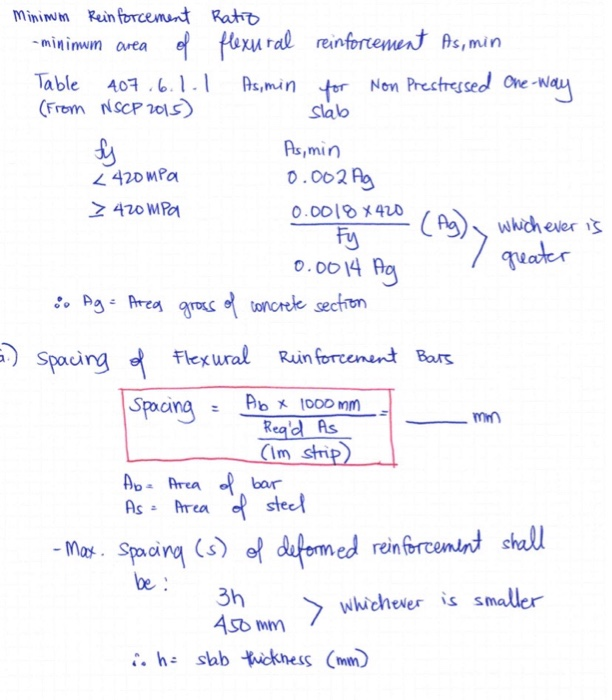 Minimum Reinforcement Ratio
-minimum area of flexural reinforcement As,min
Table 407.6.1.1 As,min for Non Prestressed One-Way
(From NSCP 2015) slab
fy As,min
< 420 MPa 0.002 Ag
≥ 420 MPa 0.0018 x 420 / Fy (Ag) > whichever is
0.0014 Ag greater
∴ Ag = Area gross of concrete section
.) Spacing of Flexural Reinforcement Bars
Spacing = Ab x 1000 mm / Req'd As (1m strip) = ____ mm
Ab = Area of bar
As = Area of steel
- Max. Spacing (s) of deformed reinforcement shall
be:
3h > whichever is smaller
450 mm
∴ h = slab thickness (mm)